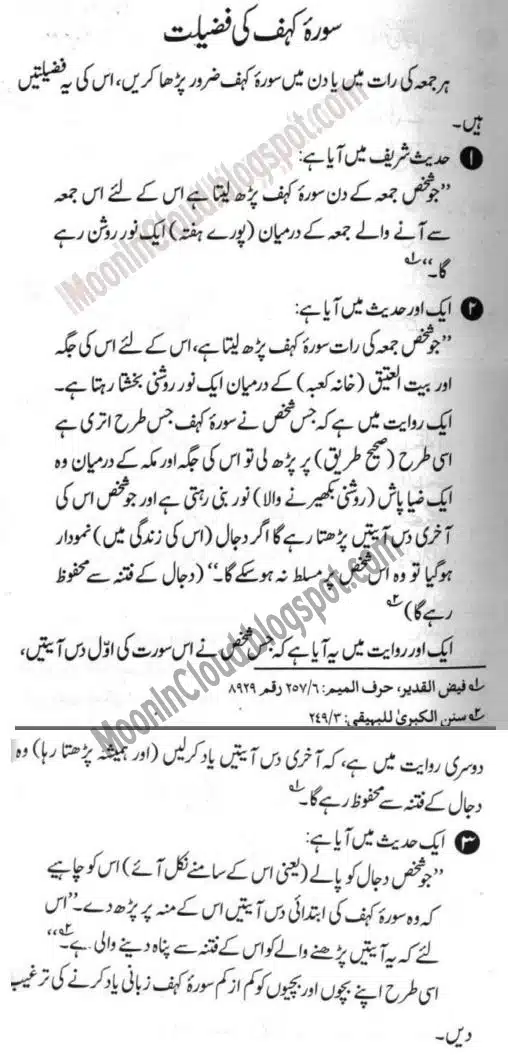 سورۂ کہف کی فضیلت
ہر جمعہ کی رات میں یا دن میں سورۂ کہف ضرور پڑھا کریں، اس کی یہ فضیلتیں
ہیں۔
۱ حدیث شریف میں آیا ہے:
”جو شخص جمعہ کے دن سورۂ کہف پڑھ لیتا ہے اس کے لئے اس جمعہ
سے آنے والے جمعہ کے درمیان (پورے ہفتہ) ایک نور روشن رہے
گا۔“ ۱؎
۲ ایک اور حدیث میں آیا ہے:
”جو شخص جمعہ کی رات سورۂ کہف پڑھ لیتا ہے، اس کے لئے اس کی جگہ
اور بیت العتیق (خانہ کعبہ) کے درمیان ایک نور روشنی بخشتا رہتا ہے۔
ایک روایت میں ہے کہ جس شخص نے سورۂ کہف جس طرح اتری ہے
اسی طرح (صحیح طریق) پر پڑھ لی تو اس کی جگہ اور مکہ کے درمیان وہ
ایک ضیا پاش (روشنی بکھیرنے والا) نور بنی رہتی ہے اور جو شخص اس کی
آخری دس آیتیں پڑھتا رہے گا اگر دجال (اس کی زندگی میں) نمودار
ہوگیا تو وہ اس شخص پر مسلط نہ ہو سکے گا۔“ (دجال کے فتنہ سے محفوظ
رہے گا) ۲؎
ایک اور روایت میں یہ آیا ہے کہ جس شخص نے اس سورت کی اوّل دس آیتیں،
۱؎ فیض القدیر، حرف المیم: ۲۵۷/۶ رقم ۸۹۲۹
۲؎ سنن الکبریٰ للبیہقی: ۲۴۹/۳
دوسری روایت میں ہے، کہ آخری دس آیتیں یاد کرلیں (اور ہمیشہ پڑھتا رہا) وہ
دجال کے فتنہ سے محفوظ رہے گا۔ ۱؎
۳ ایک حدیث میں آیا ہے:
”جو شخص دجال کو پالے (یعنی اس کے سامنے نکل آئے) اس کو چاہیے
کہ وہ سورۂ کہف کی ابتدائی دس آیتیں اس کے منہ پر پڑھ دے۔“ اس
لئے کہ یہ آیتیں پڑھنے والے کو اس کے فتنہ سے پناہ دینے والی ہے۔“ ۲؎
اسی طرح اپنے بچوں اور بچیوں کو کم از کم سورۂ کہف زبانی یاد کرنے کی ترغیب
دیں۔
!MoonInCloud.blogspot.com
MoonInCloud.blogspot.com